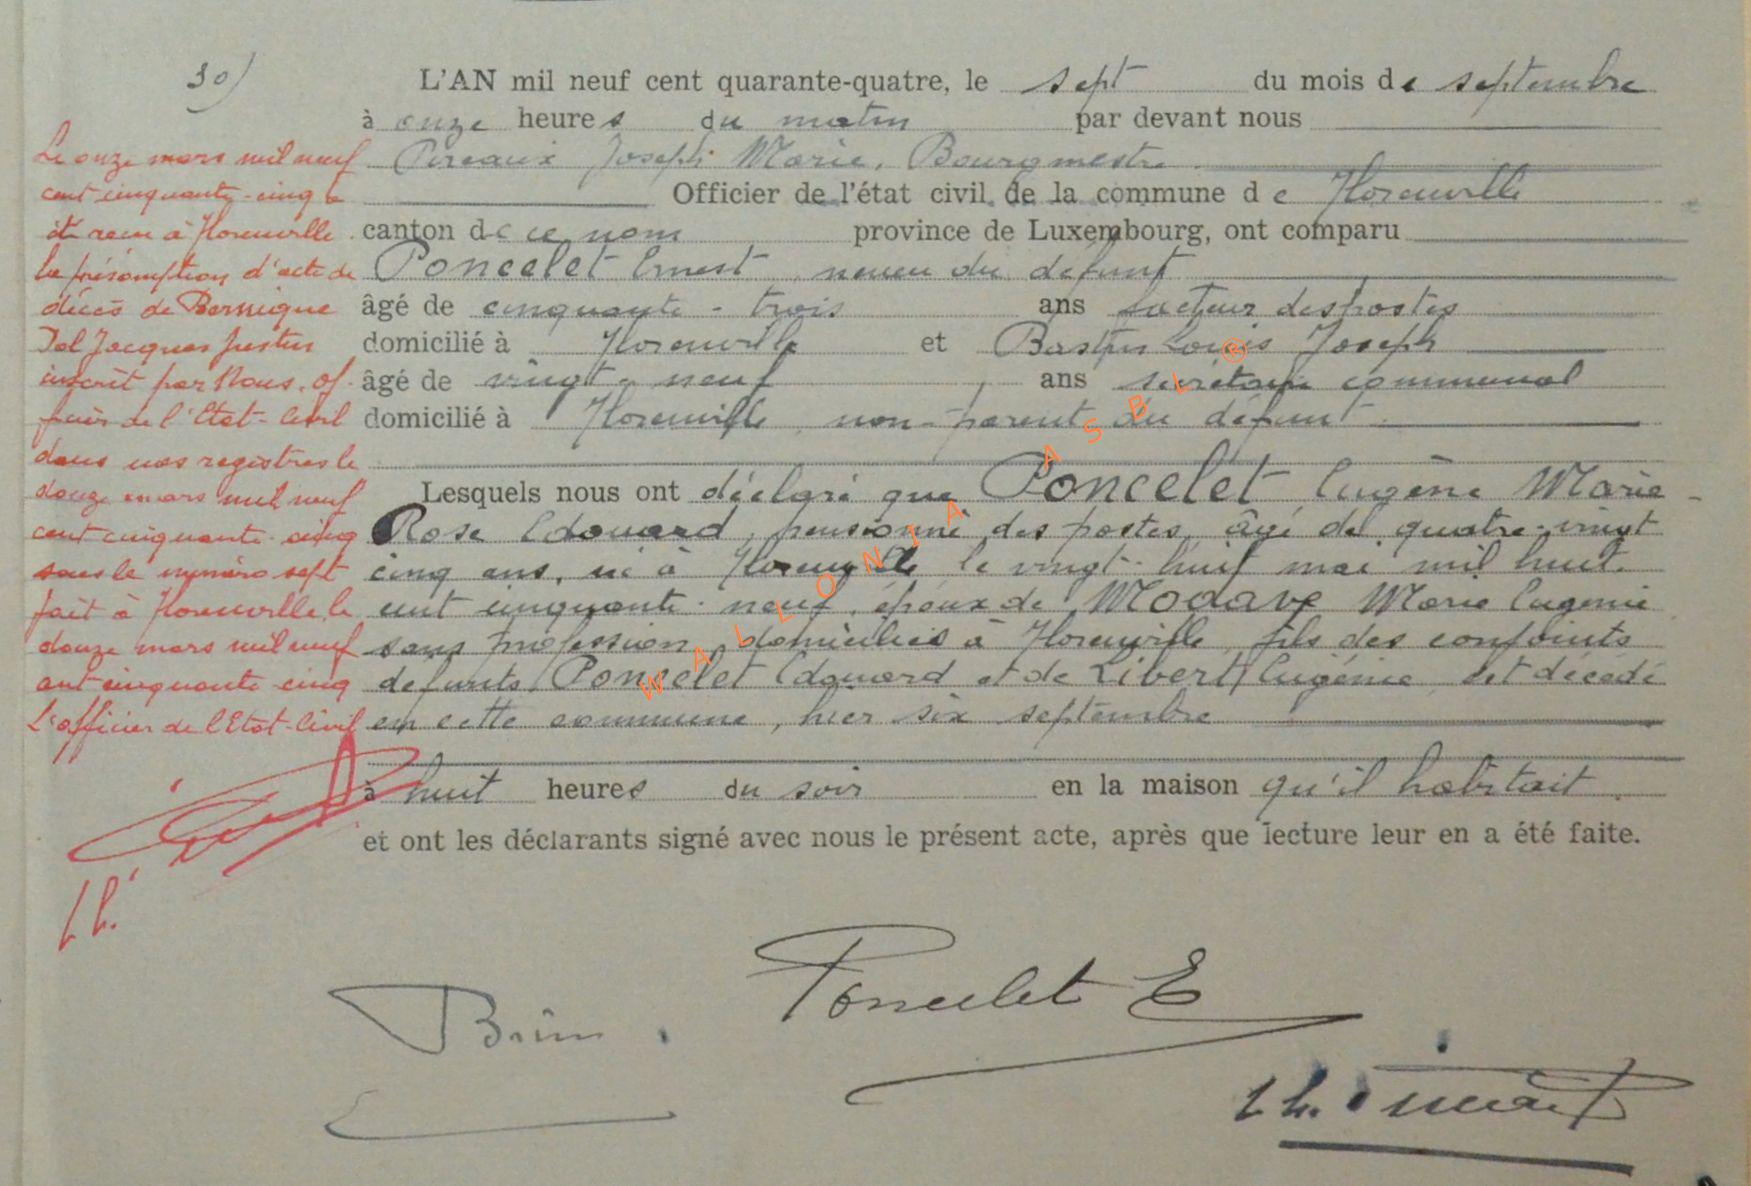 30)
Le onze mars mil neuf
cent cinquante-cinq a
été reçu à Florenville
la présomption d'acte de
décès de
Jacques Justin
inscrit par Nous, of-
ficier de l'Etat-Civil
dans nos registres le
douze mars mil neuf
cent cinquante-cinq
sous le numéro sept
fait à Florenville, le
douze mars mil neuf
cent cinquante cinq
L'officier de l'Etat-Civil
L'AN mil neuf cent quarante-quatre, le sept du mois de septembre
à onze heures du matin par devant nous
Joseph Marie, Bourgmestre
Officier de l'état civil de la commune de Florenville
canton de ce nom province de Luxembourg, ont comparu
Poncelet Ernest, neveu du défunt
âgé de cinquante-trois ans facteur des postes
domicilié à Florenville et Louis Joseph
âgé de vingt-neuf ans secrétaire communal
domicilié à Florenville, non-parent du défunt
Lesquels nous ont déclaré que Poncelet Eugène Marie-
Rose Edouard, pensionné des postes, âgé de quatre-vingt
cinq ans, né à Florenville le vingt-huit mai mil huit
cent cinquante-neuf, époux de Modave Marie Eugénie
sans profession, domiciliés à Florenville, fils des conjoints
défunts Poncelet Edouard et de Libert Eugénie, est décédé
en cette commune, hier six septembre
à huit heures du soir en la maison qu'il habitait
et ont les déclarants signé avec nous le présent acte, après que lecture leur en a été faite.
Poncelet E
WALLONIA ASBL ®